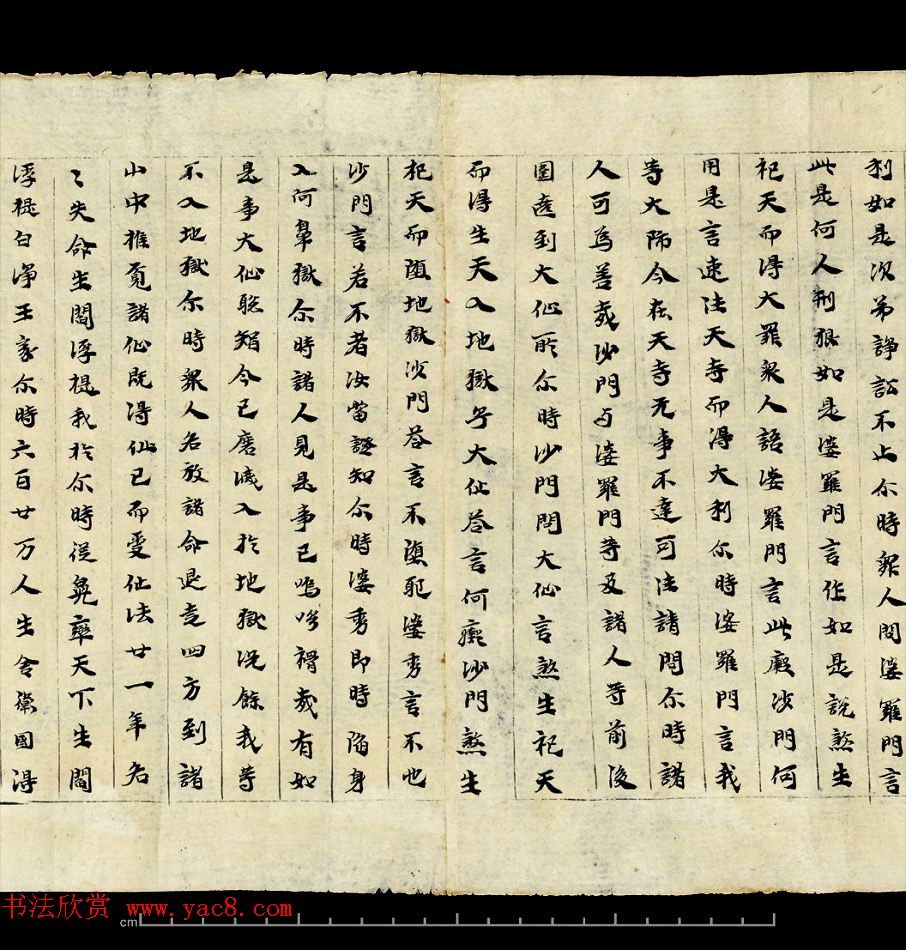 利如是次弟諍訟不止尒時眾人問婆羅門言
此是何人剃狠如是婆羅門言作如是說煞生
祀天而得大罪眾人語婆羅門言此癡沙門何
用是言速法天寺而得大利尒時婆羅門言我
等大師今在天寺无事不達可往請問尒時諸
人可為善哉沙門与婆羅門等及諸人等前後
圍遶到大仙所尒時沙門問大仙言煞生祀天
而得生天入地獄乎大仙荅言何癡沙門煞生
祀天而墮地獄沙門荅言不墮耶婆秀言不也
沙門言若不者汝當證知尒時婆秀即時陷身
入阿鼻獄尒時諸人見是事已嗚呼禍哉有如
是事大仙聡智今已磨滅入於地獄况餘我等
不入地獄尒時眾人各放諸命退走四方到諸
山中推覓諸仙既得仙已而受仙法廿一年各
〻失命生閻浮提我於尒時従兜率天下生閻
浮提白淨王家尒時六百廿万人生舍衛國得
书法欣赏 www.yac8.com
cm